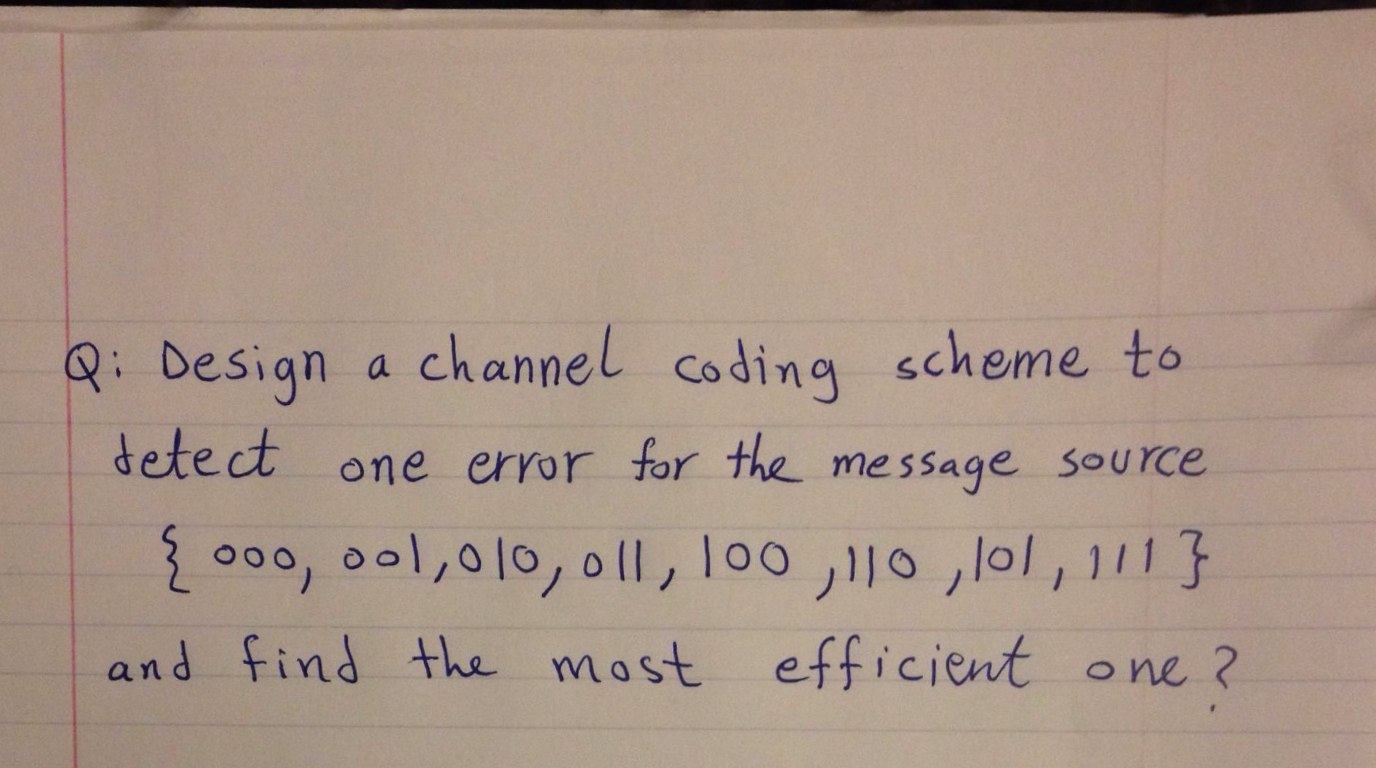 Q: Design a channel coding scheme to
detect one error for the message source
{ 000, 001, 010, 011, 100, 110, 101, 111 }
and find the most efficient one?